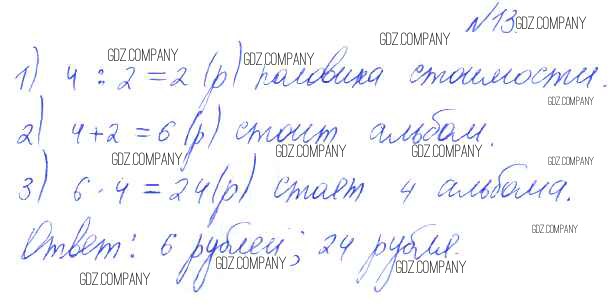 №13.
1) 4 : 2 = 2 (р) половина стоимости.
2) 4 + 2 = 6 (р) стоит альбом.
3) 6 · 4 = 24 (р) стоят 4 альбома.
Ответ: 6 рублей; 24 рубля.
GDZ.COMPANY
GDZ.COMPANY
GDZ.COMPANY
GDZ.COMPANY
GDZ.COMPANY
GDZ.COMPANY
GDZ.COMPANY
GDZ.COMPANY
GDZ.COMPANY
GDZ.COMPANY
GDZ.COMPANY
GDZ.COMPANY
GDZ.COMPANY